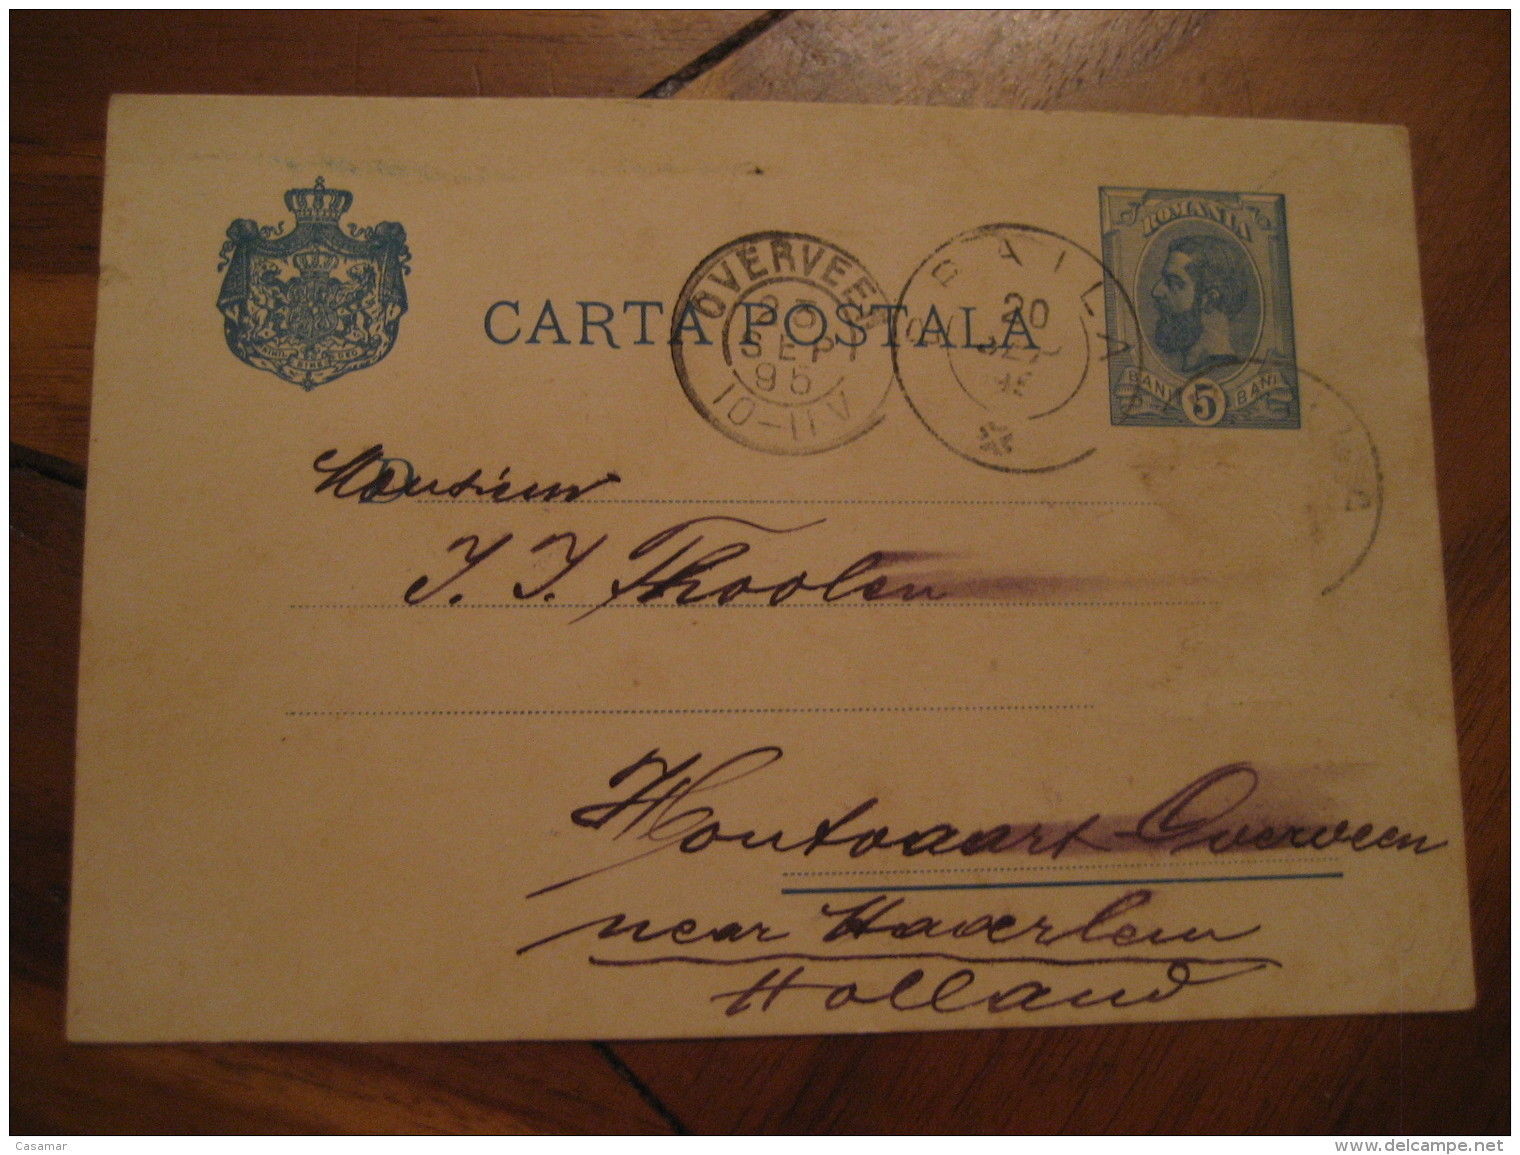 ROMANIA
OVERVEEN
23
SEP
95
10-11 V
BRAILA
20
CARTA POSTALA
NIHIL SINE DEO
BANI 5 BANI
Monsieur
J. J. Thoolen
Houtvaart Overveen
near Haarlem
Holland
Casamar
www.delcampe.net